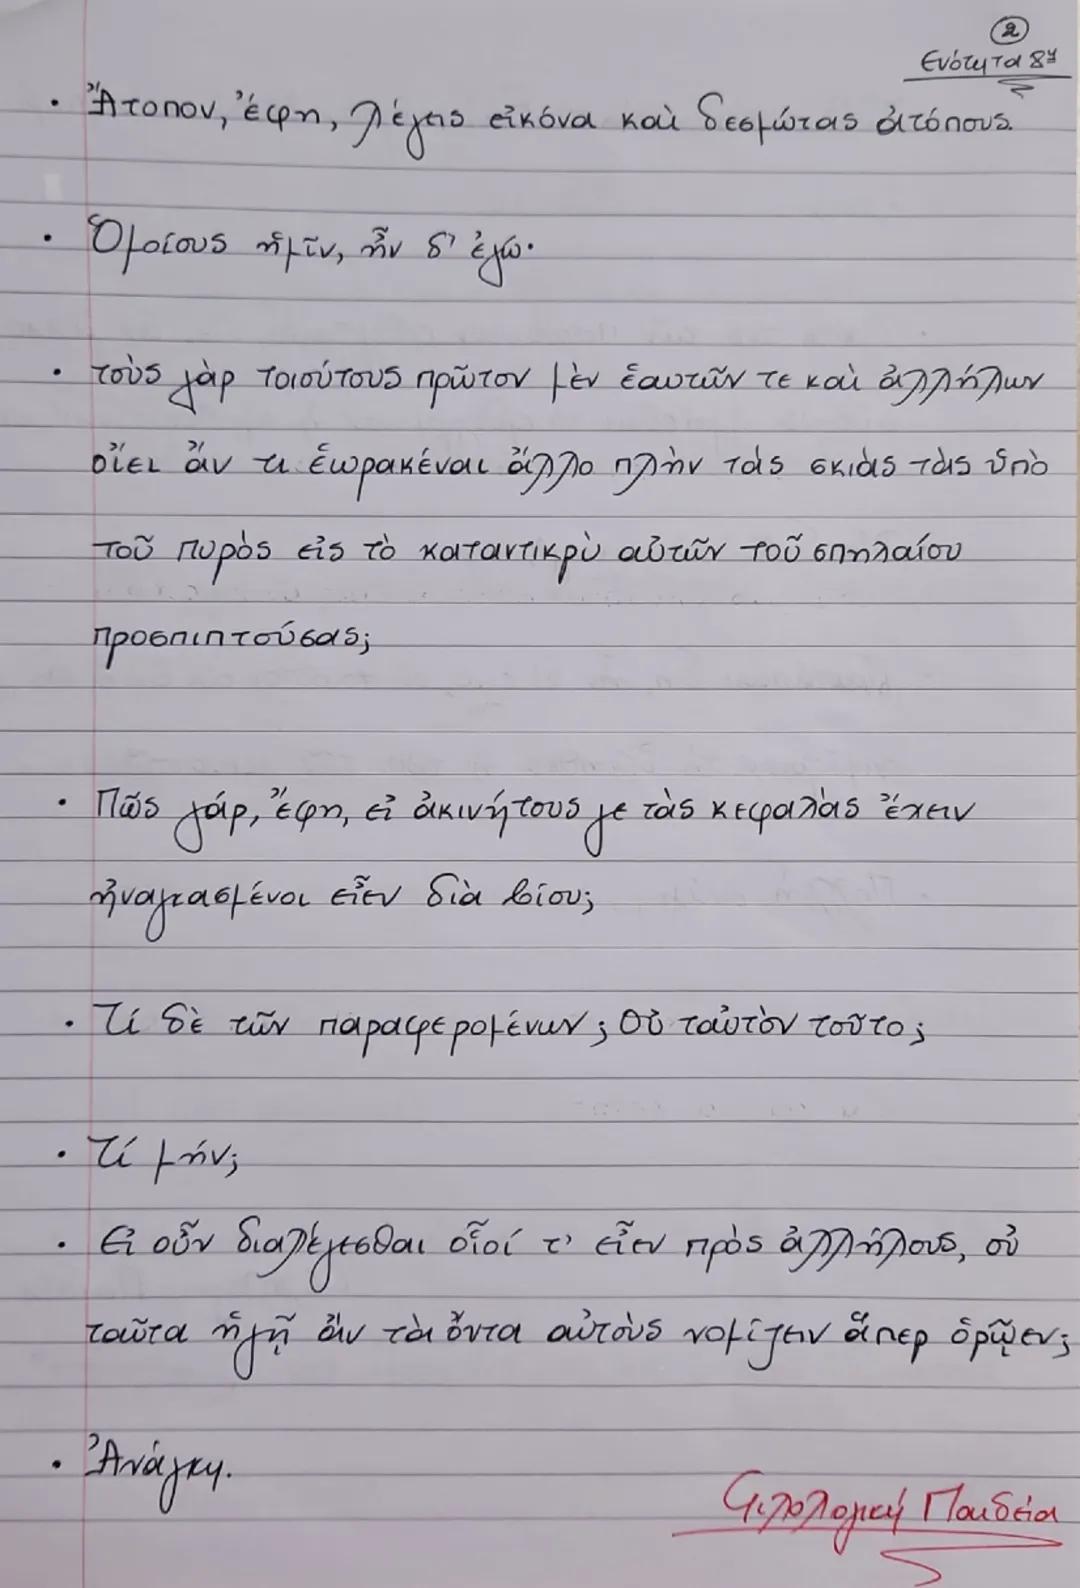 ②
Ενότητα 8η
• Ἄτοπον, ἔφη, λέγεις εἰκόνα καὶ δεσμώτας ἀτόπους.
• Ὁμοίους ἡμῖν, ἦν δ' ἐγώ·
• τοὺς γὰρ τοιούτους πρῶτον μὲν ἑαυτῶν τε καὶ ἀλλήλων
οἴει ἄν τι ἑωρακέναι ἄλλο πλὴν τὰς σκιὰς τὰς ὑπὸ
τοῦ πυρὸς εἰς τὸ καταντικρὺ αὐτῶν τοῦ σπηλαίου
προσπιπτούσας;
• Πῶς γάρ, ἔφη, εἰ ἀκινήτους γε τὰς κεφαλὰς ἔχειν
ἠναγκασμένοι εἶεν διὰ βίου;
• Τί δὲ τῶν παραφερομένων; Οὐ ταὐτὸν τοῦτο;
• Τί μήν;
• Εἰ οὖν διαλέγεσθαι οἷοί τ' εἶεν πρὸς ἀλλήλους, οὐ
ταῦτα ἡγῇ ἂν τὰ ὄντα αὐτοὺς νομίζειν ἅπερ ὁρῷεν;
• Ἀνάγκη.
Φιλολογική Παιδεία